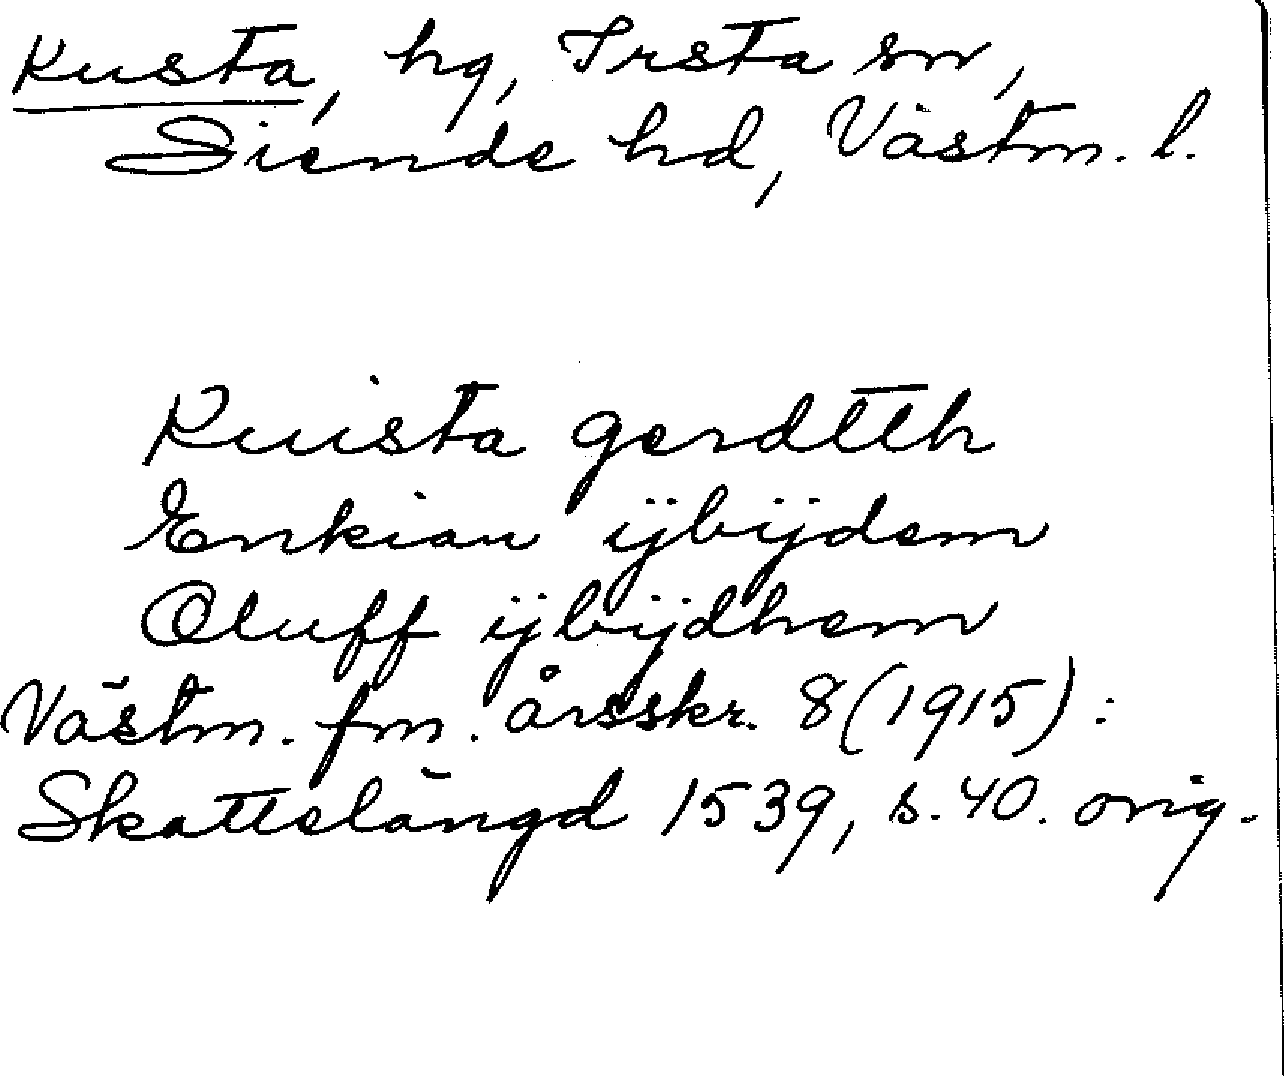 Kusta, hg, Irsta sn,
Siende hd, Västm. l.
Kuista gerdtth
Enkian ÿbÿdem
Oluff ÿbÿdhem
Västm. fm. årsskr. 8 (1915):
Skattelängd 1539, s. 40. orig.